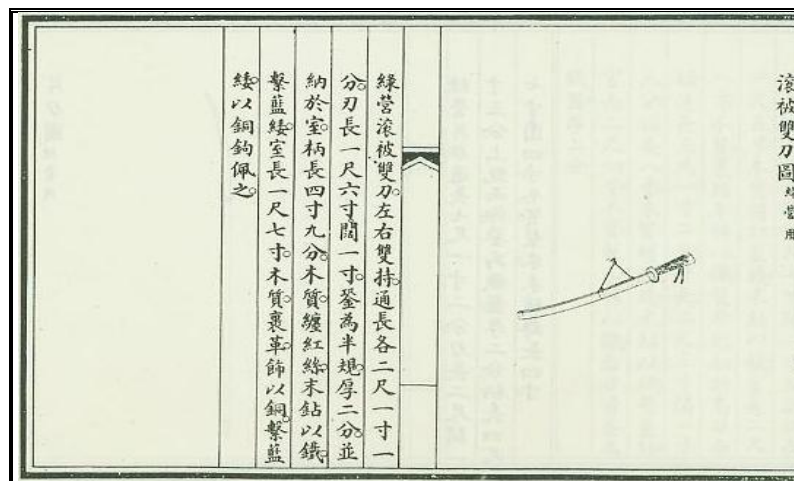 滾被雙刀圖綠營用
綠營滾被雙刀。左右雙持。通長各二尺一寸一
分。刃長一尺六寸。闊一寸。銎為半規。厚二分。並
納於室。柄長四寸九分。木質纏紅絲。末鉆以鐵。
繫藍緌。室長一尺七寸。木質裹革。飾以銅。繫藍
緌。以銅鉤佩之。